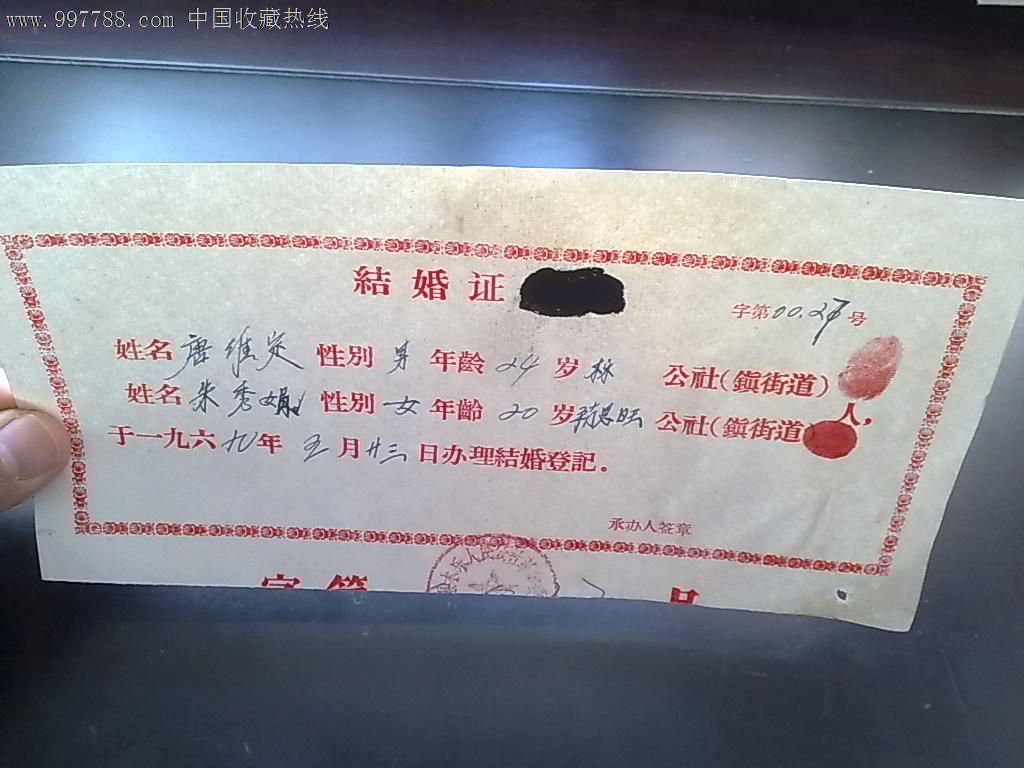 www.997788.com 中国收藏热线
結婚证
字第00.27号
姓名 唐维定 性别 男 年龄 24 岁 林 公社(鎮街道)
姓名 朱秀娟 性别 女 年龄 20 岁 旺 公社(鎮街道)人,
于一九六九年 五月廿三日办理結婚登記。
承办人签章
字第 号